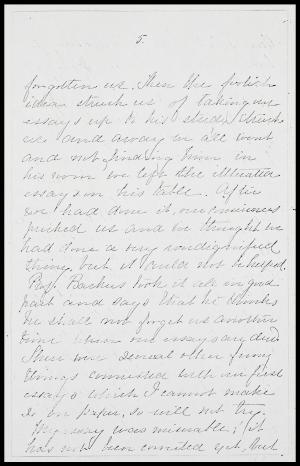 5.
forgotten us. Then the foolish
idea struck us of taking our
essays up to his study, which
we did and away we all went
and not finding him in
his room we left the illustrated
essays on his table. After
we had done it, our consciences
pricked us and we thought we
had done a very undignified
thing, but it could not be helped.
Prof. Backus took it all in good
part and says that he thinks
he shall not forget us another
time when our essays are due.
There were several other funny
things connected with our first
essays which I cannot make
do on paper, so will not try.
My essay was miserable; it
has not been corrected yet, but